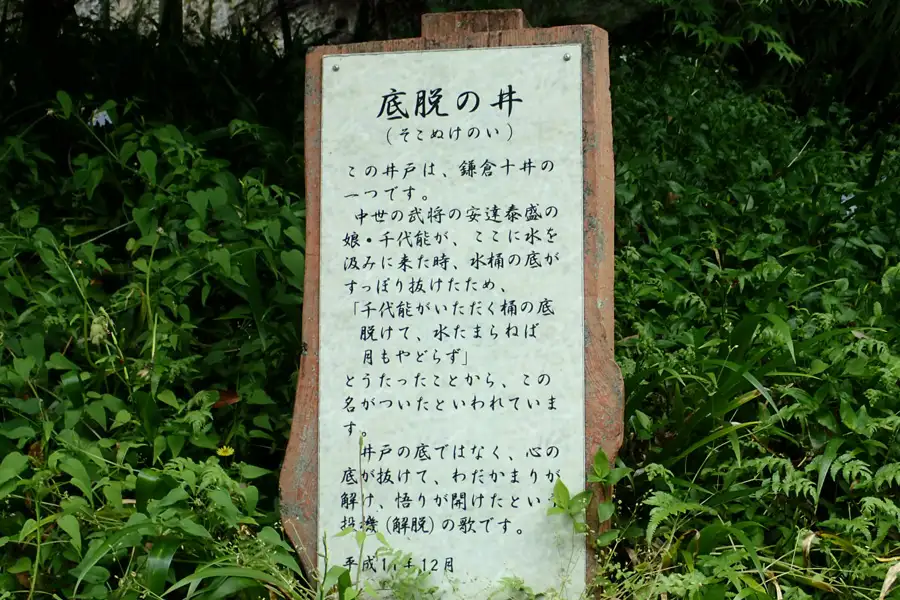 底脱の井
(そこぬけのい)
この井戸は、鎌倉十井の
一つです。
中世の武将の安達泰盛の
娘・千代能が、ここに水を
汲みに来た時、水桶の底が
すっぽり抜けたため、
「千代能がいただく桶の底
脱けて、水たまらねば
月もやどらず」
とうたったことから、この
名がついたといわれていま
す。
井戸の底ではなく、心の
底が抜けて、わだかまりが
解け、悟りが開けたという
投機(解脱)の歌です。
平成 12月